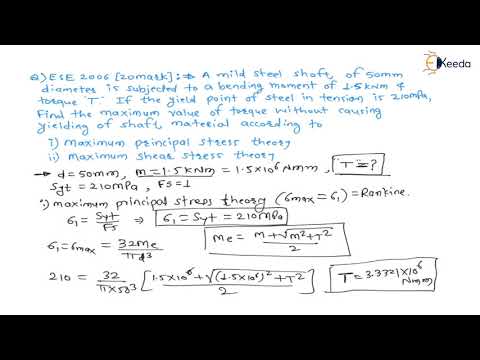 Keeda
Q) ESE 2006 [20mark] :→ A mild steel shaft, of 50mm
diameter is subjected to a bending moment of 1.5kNm &
torque 'T'. If the yield point of steel in tension is 210mPa,
Find the maximum value of torque without causing
yielding of shaft material according to
i) maximum principal stress theory
ii) maximum shear stress theory
→ d=50mm, m=1.5kNm = 1.5×10⁶ Nmm, T=?
Syt = 210mPa, FS=1
i) maximum principal stress theory (σmax=σ1)=Rankine.
σ1 = Syt/FS ⇒ σ1 = Syt = 210mPa
σ1 = σmax = 32Me/πd³ Me = m+√m²+T²/2
210 = 32/π×50³ [1.5×10⁶+√(1.5×10⁶)²+T²/2] T=3.3321×10⁶ Nmm